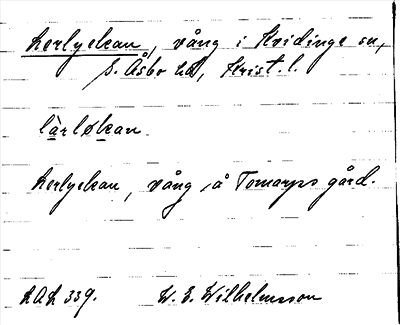 Lerlyckan, vång i Kvidinge sn,
S. Åsbo hd, Krist. l.
làrløkan.
Lerlyckan, vång å Tomarps gård.
LAL 339. W. E. Wilhelmsson